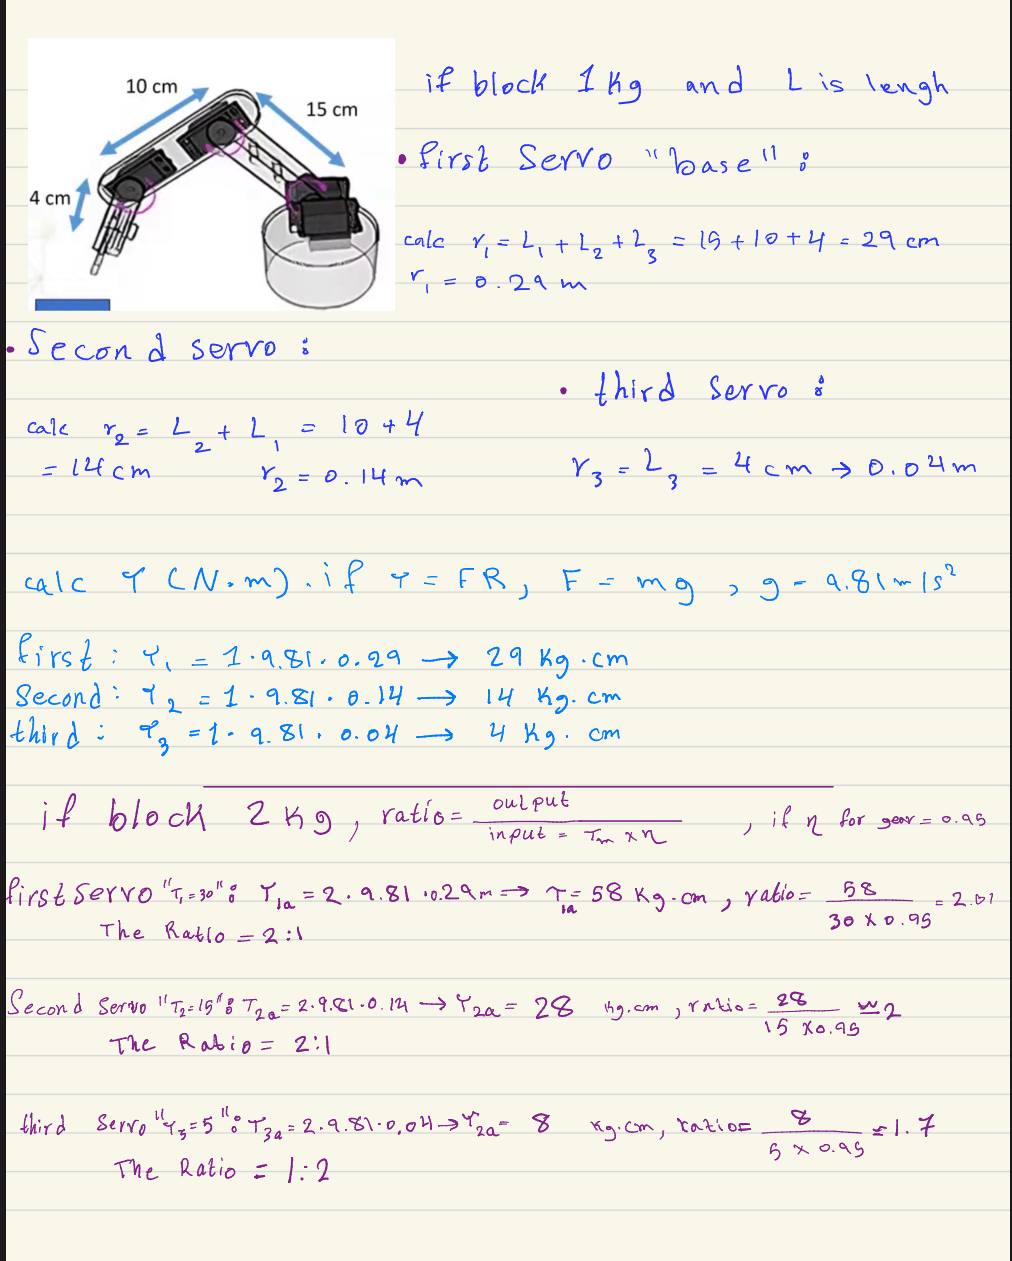 10 cm
15 cm
4 cm
if block 1 Kg and L is lengh
• first Servo "base" :
calc r₁ = L₁ + L₂ + L₃ = 15 + 10 + 4 = 29 cm
r₁ = 0.29 m
• Second servo :
calc r₂ = L₂ + L₁ = 10 + 4
= 14 cm r₂ = 0.14 m
• third Servo :
r₃ = L₃ = 4 cm → 0.04 m
calc τ (N.m). if τ = FR, F = mg , g = 9.81 m/s²
first : τ₁ = 1 · 9.81 · 0.29 → 29 Kg.cm
Second : τ₂ = 1 · 9.81 · 0.14 → 14 Kg.cm
third : τ₃ = 1 · 9.81 · 0.04 → 4 Kg. cm
if block 2 Kg , ratio = output / input = Tₘ x η , if η for gear = 0.95
first Servo "T₁=30" : τ₁ₐ = 2 . 9.81 . 0.29 m → τ₁ₐ = 58 Kg.cm , ratio = 58 / 30 x 0.95 = 2.01
The Ratio = 2:1
Second Servo "T₂=15" : T₂ₐ = 2 . 9.81 . 0.14 → τ₂ₐ = 28 kg.cm , ratio = 28 / 15 x 0.95 ≃ 2
The Ratio = 2:1
third Servo "τ₃=5" : T₃ₐ = 2 . 9.81 . 0.04 → τ₂ₐ = 8 Kg.cm, ratio = 8 / 5 x 0.95 = 1.7
The Ratio = 1:2